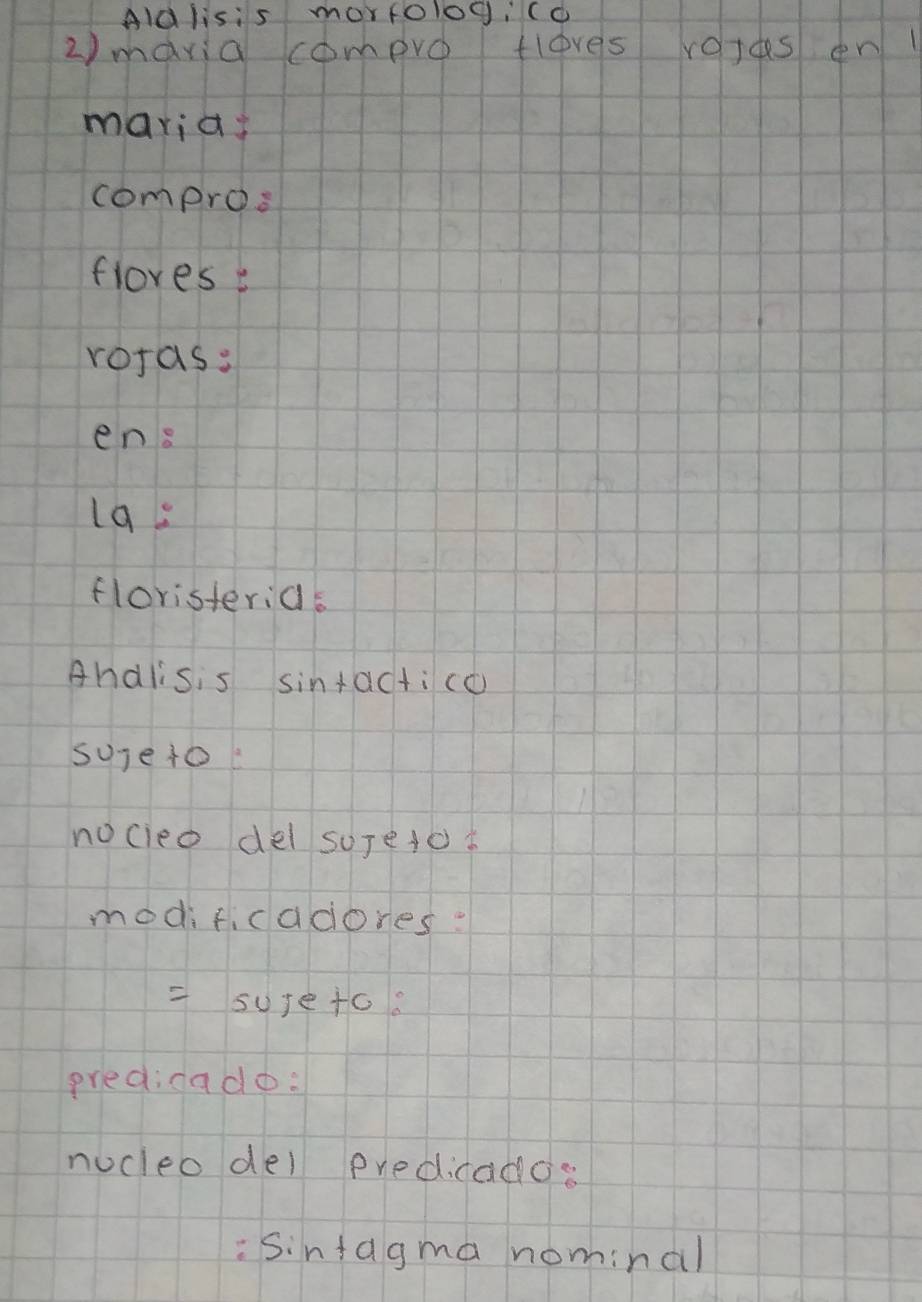 Alalisis morfologico
2) maria compro flores rojas en l
maria:
compro:
flores:
rojas:
en:
la:
floristeria:
Analisis sintactico
sujeto:
nocleo del sujeto:
modificadores:
= sujeto:
predicado:
nucleo del predicado:
: sintagma nominal